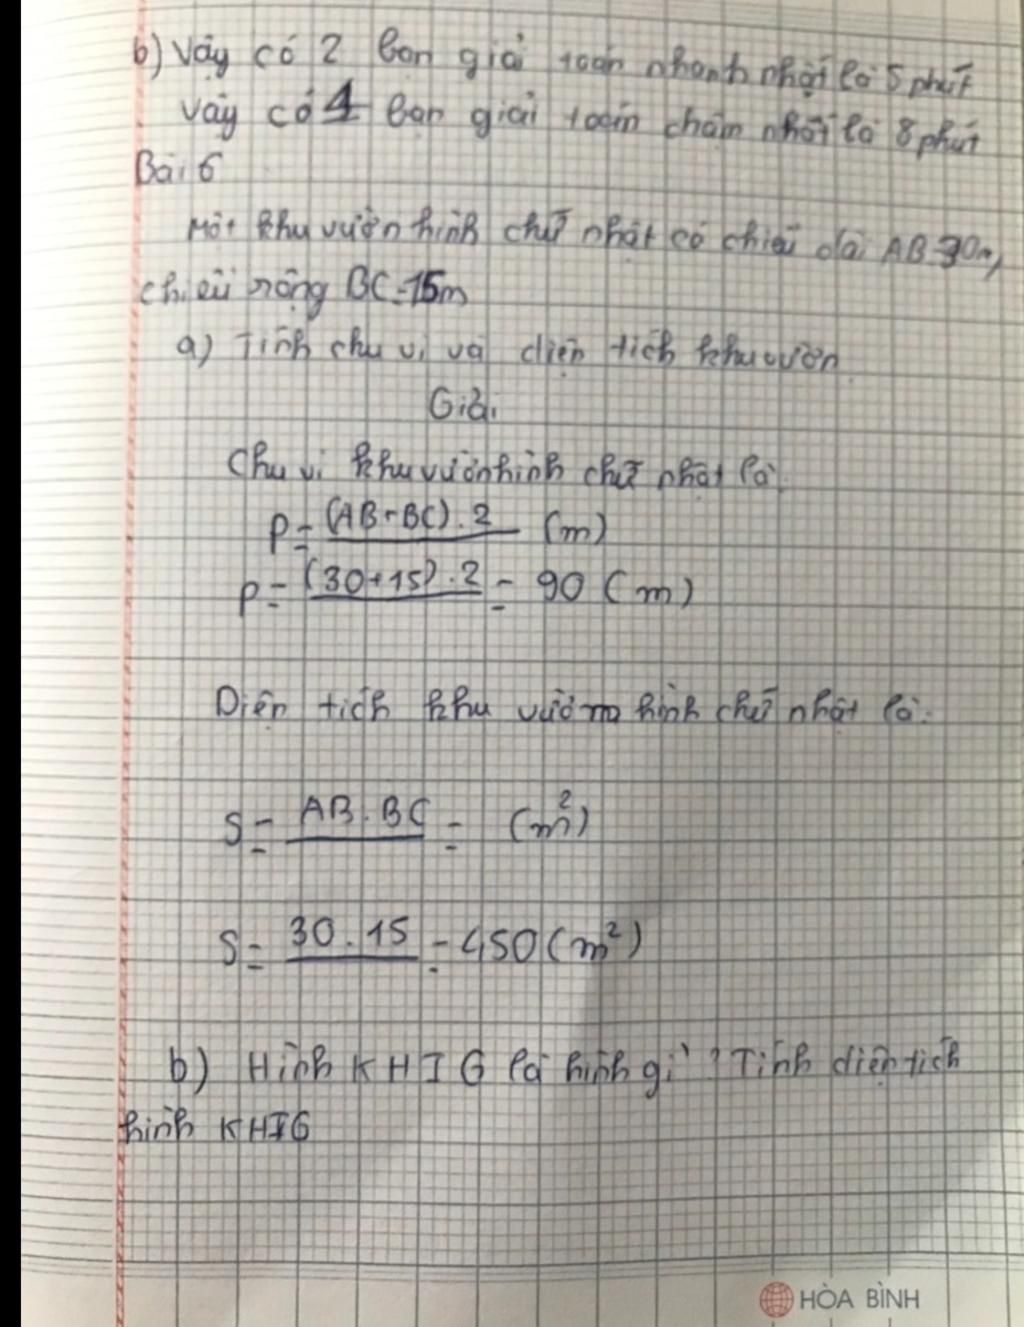 b) Vậy có 2 bạn giải toán nhanh nhất là 5 phút
Vậy có 4 bạn giải toán chậm nhất là 8 phút
Bài 6
Một khu vườn hình chữ nhật có chiều dài AB=30m,
chiều rộng BC=15m
a) Tính chu vi và diện tích khu vườn
Giải
Chu vi khu vườn hình chữ nhật là:
P = (AB+BC).2 (m)
P = (30+15).2 = 90 (m)
Diện tích khu vườn hình chữ nhật là:
S = AB.BC = (m²)
S = 30.15 = 450 (m²)
b) Hình KHIG là hình gì? Tính diện tích
hình KHIG
HÒA BÌNH